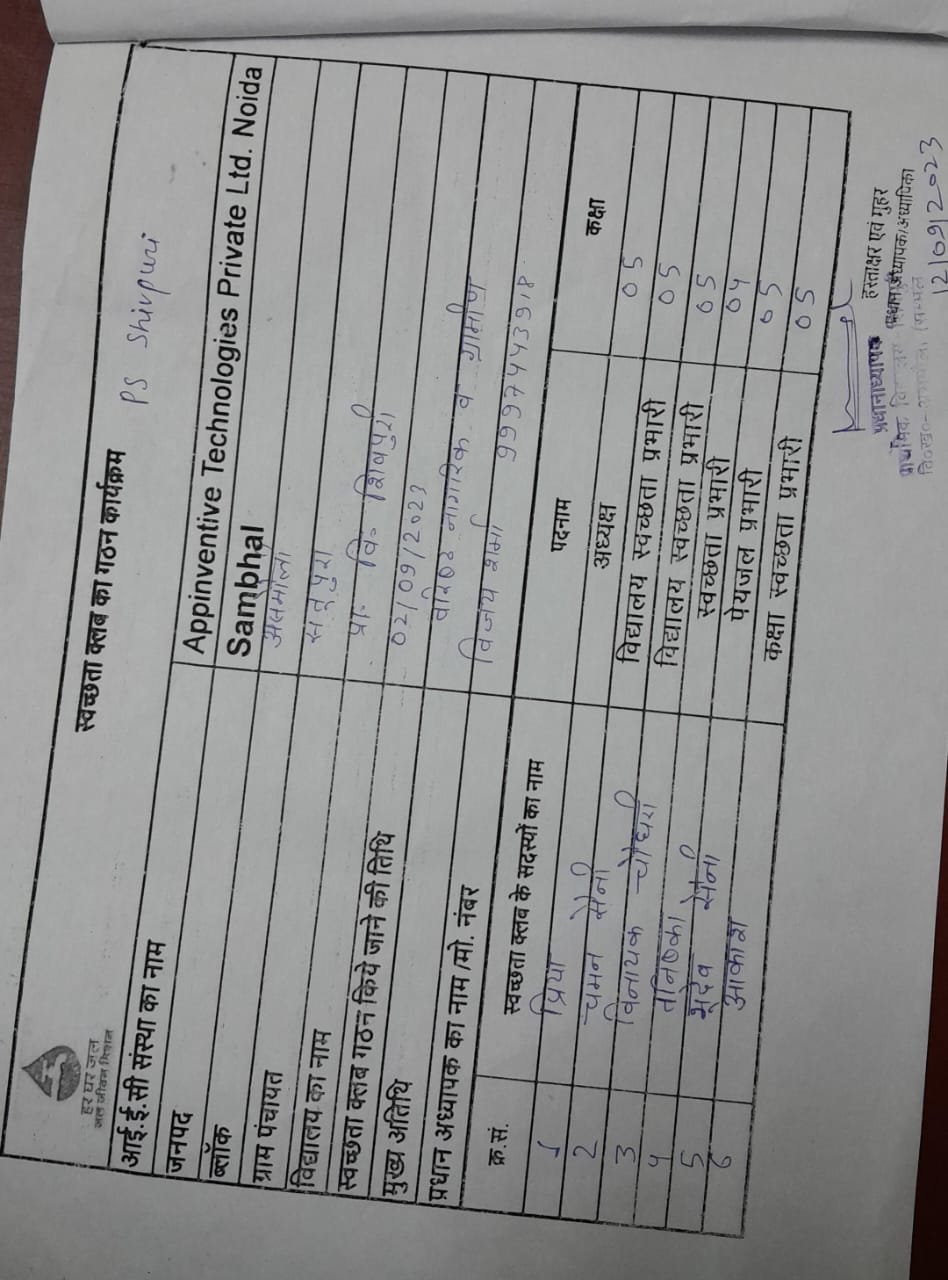 हर घर जल
जल जीवन मिशन
स्वच्छता क्लब का गठन कार्यक्रम
PS Shivpuri
आई.ई.सी संस्था का नाम Appinventive Technologies Private Ltd. Noida
जनपद Sambhal
ब्लॉक असमोली
ग्राम पंचायत
विद्यालय का नाम प्रा० वि० शिवपुरी
स्वच्छता क्लब गठन किये जाने की तिथि 02/09/2023
मुख्य अतिथि वरिष्ठ नागरिक व ग्रामीण
प्रधान अध्यापक का नाम /मो. नंबर विजय शर्मा
क्र.सं. स्वच्छता क्लब के सदस्यों का नाम पदनाम कक्षा
1 प्रिया अध्यक्ष 05
2 चमन सैनी विद्यालय स्वच्छता प्रभारी 05
3 विनायक चौधरी विद्यालय स्वच्छता प्रभारी 05
4 तनिष्का स्वच्छता प्रभारी 04
5 भूदेव सैनी पेयजल प्रभारी 05
6 आकाश कक्षा स्वच्छता प्रभारी 05
हस्ताक्षर एवं मुहर
प्रधानाध्यापक
2/09/2023